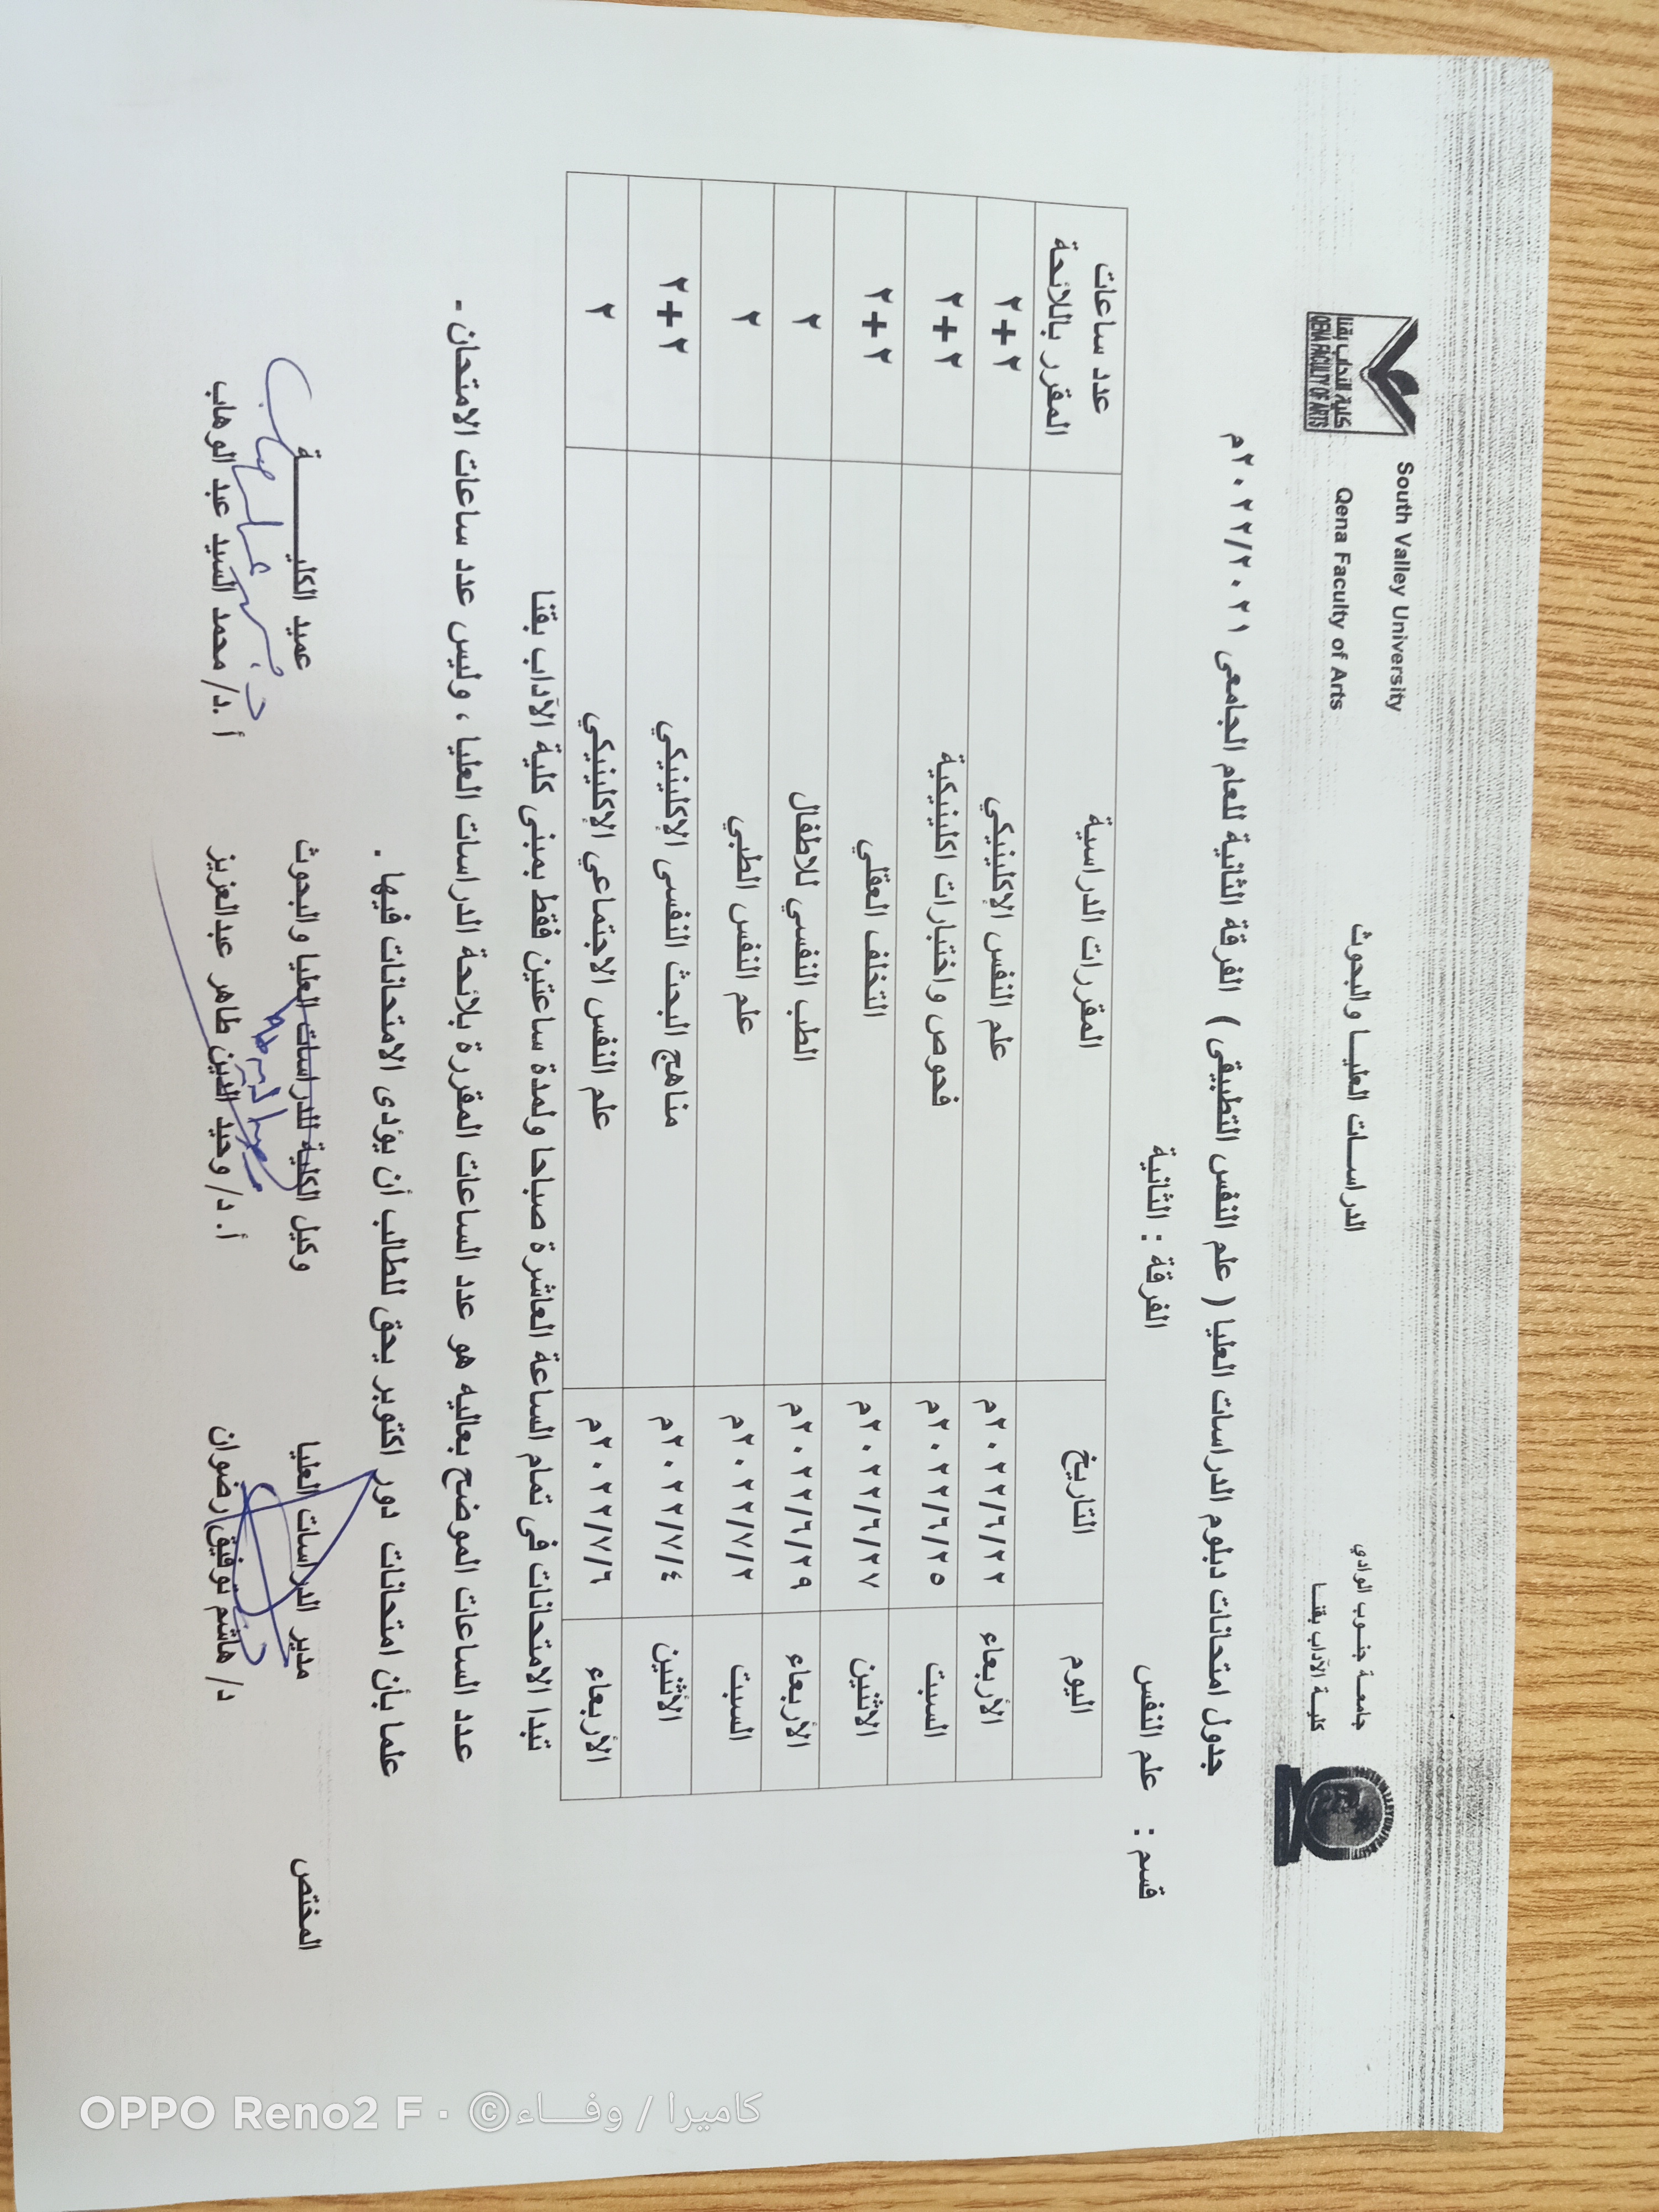 South Valley University
Qena Faculty of Arts
كلية الآداب بقنا
QENA FACULTY OF ARTS
الدراســات العليــا والبحوث
جامعــة جنــوب الوادي
كليــة الآداب بقنــا
جدول امتحانات دبلوم الدراسات العليا ( علم النفس التطبيقى ) الفرقة الثانية للعام الجامعى ٢٠٢٢/٢٠٢١م
قسم : علم النفس الفرقة : الثانية
اليوم التاريخ المقررات الدراسية عدد ساعات المقرر باللائحة
الأربعاء ٢٠٢٢/٦/٢٢م علم النفس الإكلينيكي ٢+٢
السبت ٢٠٢٢/٦/٢٥م فحوص واختبارات اكلينيكية ٢+٢
الاثنين ٢٠٢٢/٦/٢٧م التخلف العقلي ٢+٢
الأربعاء ٢٠٢٢/٦/٢٩م الطب النفسي للاطفال ٢
السبت ٢٠٢٢/٧/٢م علم النفس الطبي ٢
الأثنين ٢٠٢٢/٧/٤م مناهج البحث النفسى الإكلينيكي ٢+٢
الأربعاء ٢٠٢٢/٧/٦م علم النفس الاجتماعي الإكلينيكي ٢
تبدا الامتحانات فى تمام الساعة العاشرة صباحا ولمدة ساعتين فقط بمبنى كلية الآداب بقنا
عدد الساعات الموضح بعاليه هو عدد الساعات المقررة بلائحة الدراسات العليا ، وليس عدد ساعات الامتحان -
علما بأن امتحانات دور اكتوبر يحق للطالب أن يؤدى الامتحانات فيها .
المختص مدير الدراسات العليا وكيل الكلية للدراسات العليا والبحوث عميد الكليـــــــة
د/ هاشم توفيق رضوان أ. د/ وحيد الدين طاهر عبدالعزيز أ .د/ محمد السيد عبد الوهاب
OPPO Reno2 F · ©كاميرا / وفـــاء